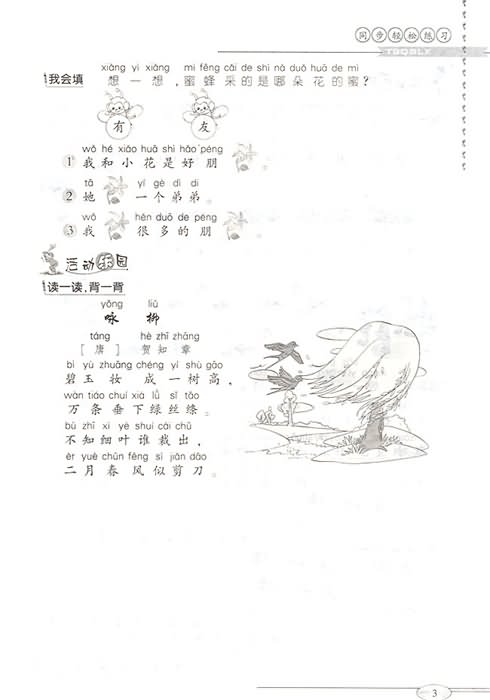 同步轻松练习
TBQSLX
xiǎng yi xiǎng mì fēng cǎi de shì nǎ duǒ huā de mì
我会填 想一想,蜜蜂采的是哪朵花的蜜?
有 友
wǒ hé xiǎo huā shì hǎo péng
1 我和小花是好朋
tā yí gè dì di
2 她 一个弟弟。
wǒ hěn duō de péng
3 我 很多的朋
活动乐园
读一读,背一背
yǒng liǔ
咏柳
táng hè zhī zhāng
[唐] 贺知章
bì yù zhuāng chéng yí shù gāo
碧玉妆成一树高,
wàn tiáo chuí xià lǜ sī tāo
万条垂下绿丝绦。
bù zhī xì yè shuí cái chū
不知细叶谁裁出,
èr yuè chūn fēng sì jiǎn dāo
二月春风似剪刀。
3